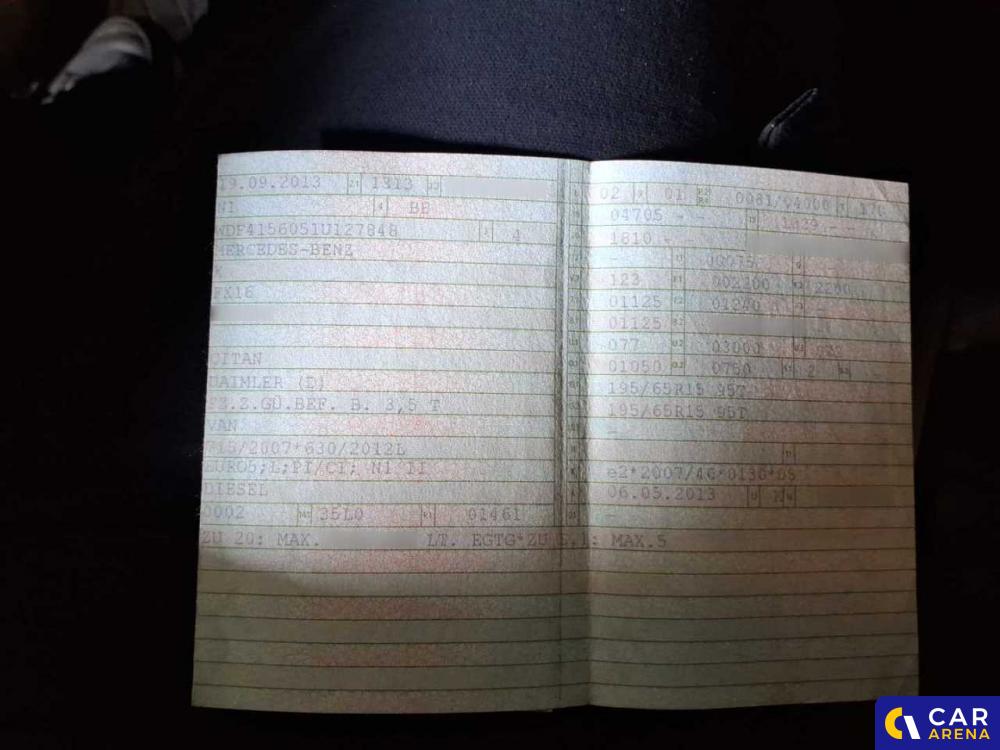 19.09.2013 1313
BB
WDF4156051U127848 4
MERCEDES-BENZ
CITAN
DAIMLER (D)
FZ.Z.GÜ.BEF. B. 3,5 T
VAN
715/2007*630/2012L
EURO5;L;PI/CI; N1 II
DIESEL
0002 35L0 01461
ZU 20: MAX. LT. EGTG*ZU MAX.5
02 01 0081/04000
04705 - - 1829 - -
1810 - -
-
123 002200 2200
01125 01240
01125
077 03000
01050 0750 2
195/65R15 95T
195/65R15 95T
-
e2*2007/46*0130*05
06.05.2013
-
CAR
ARENA